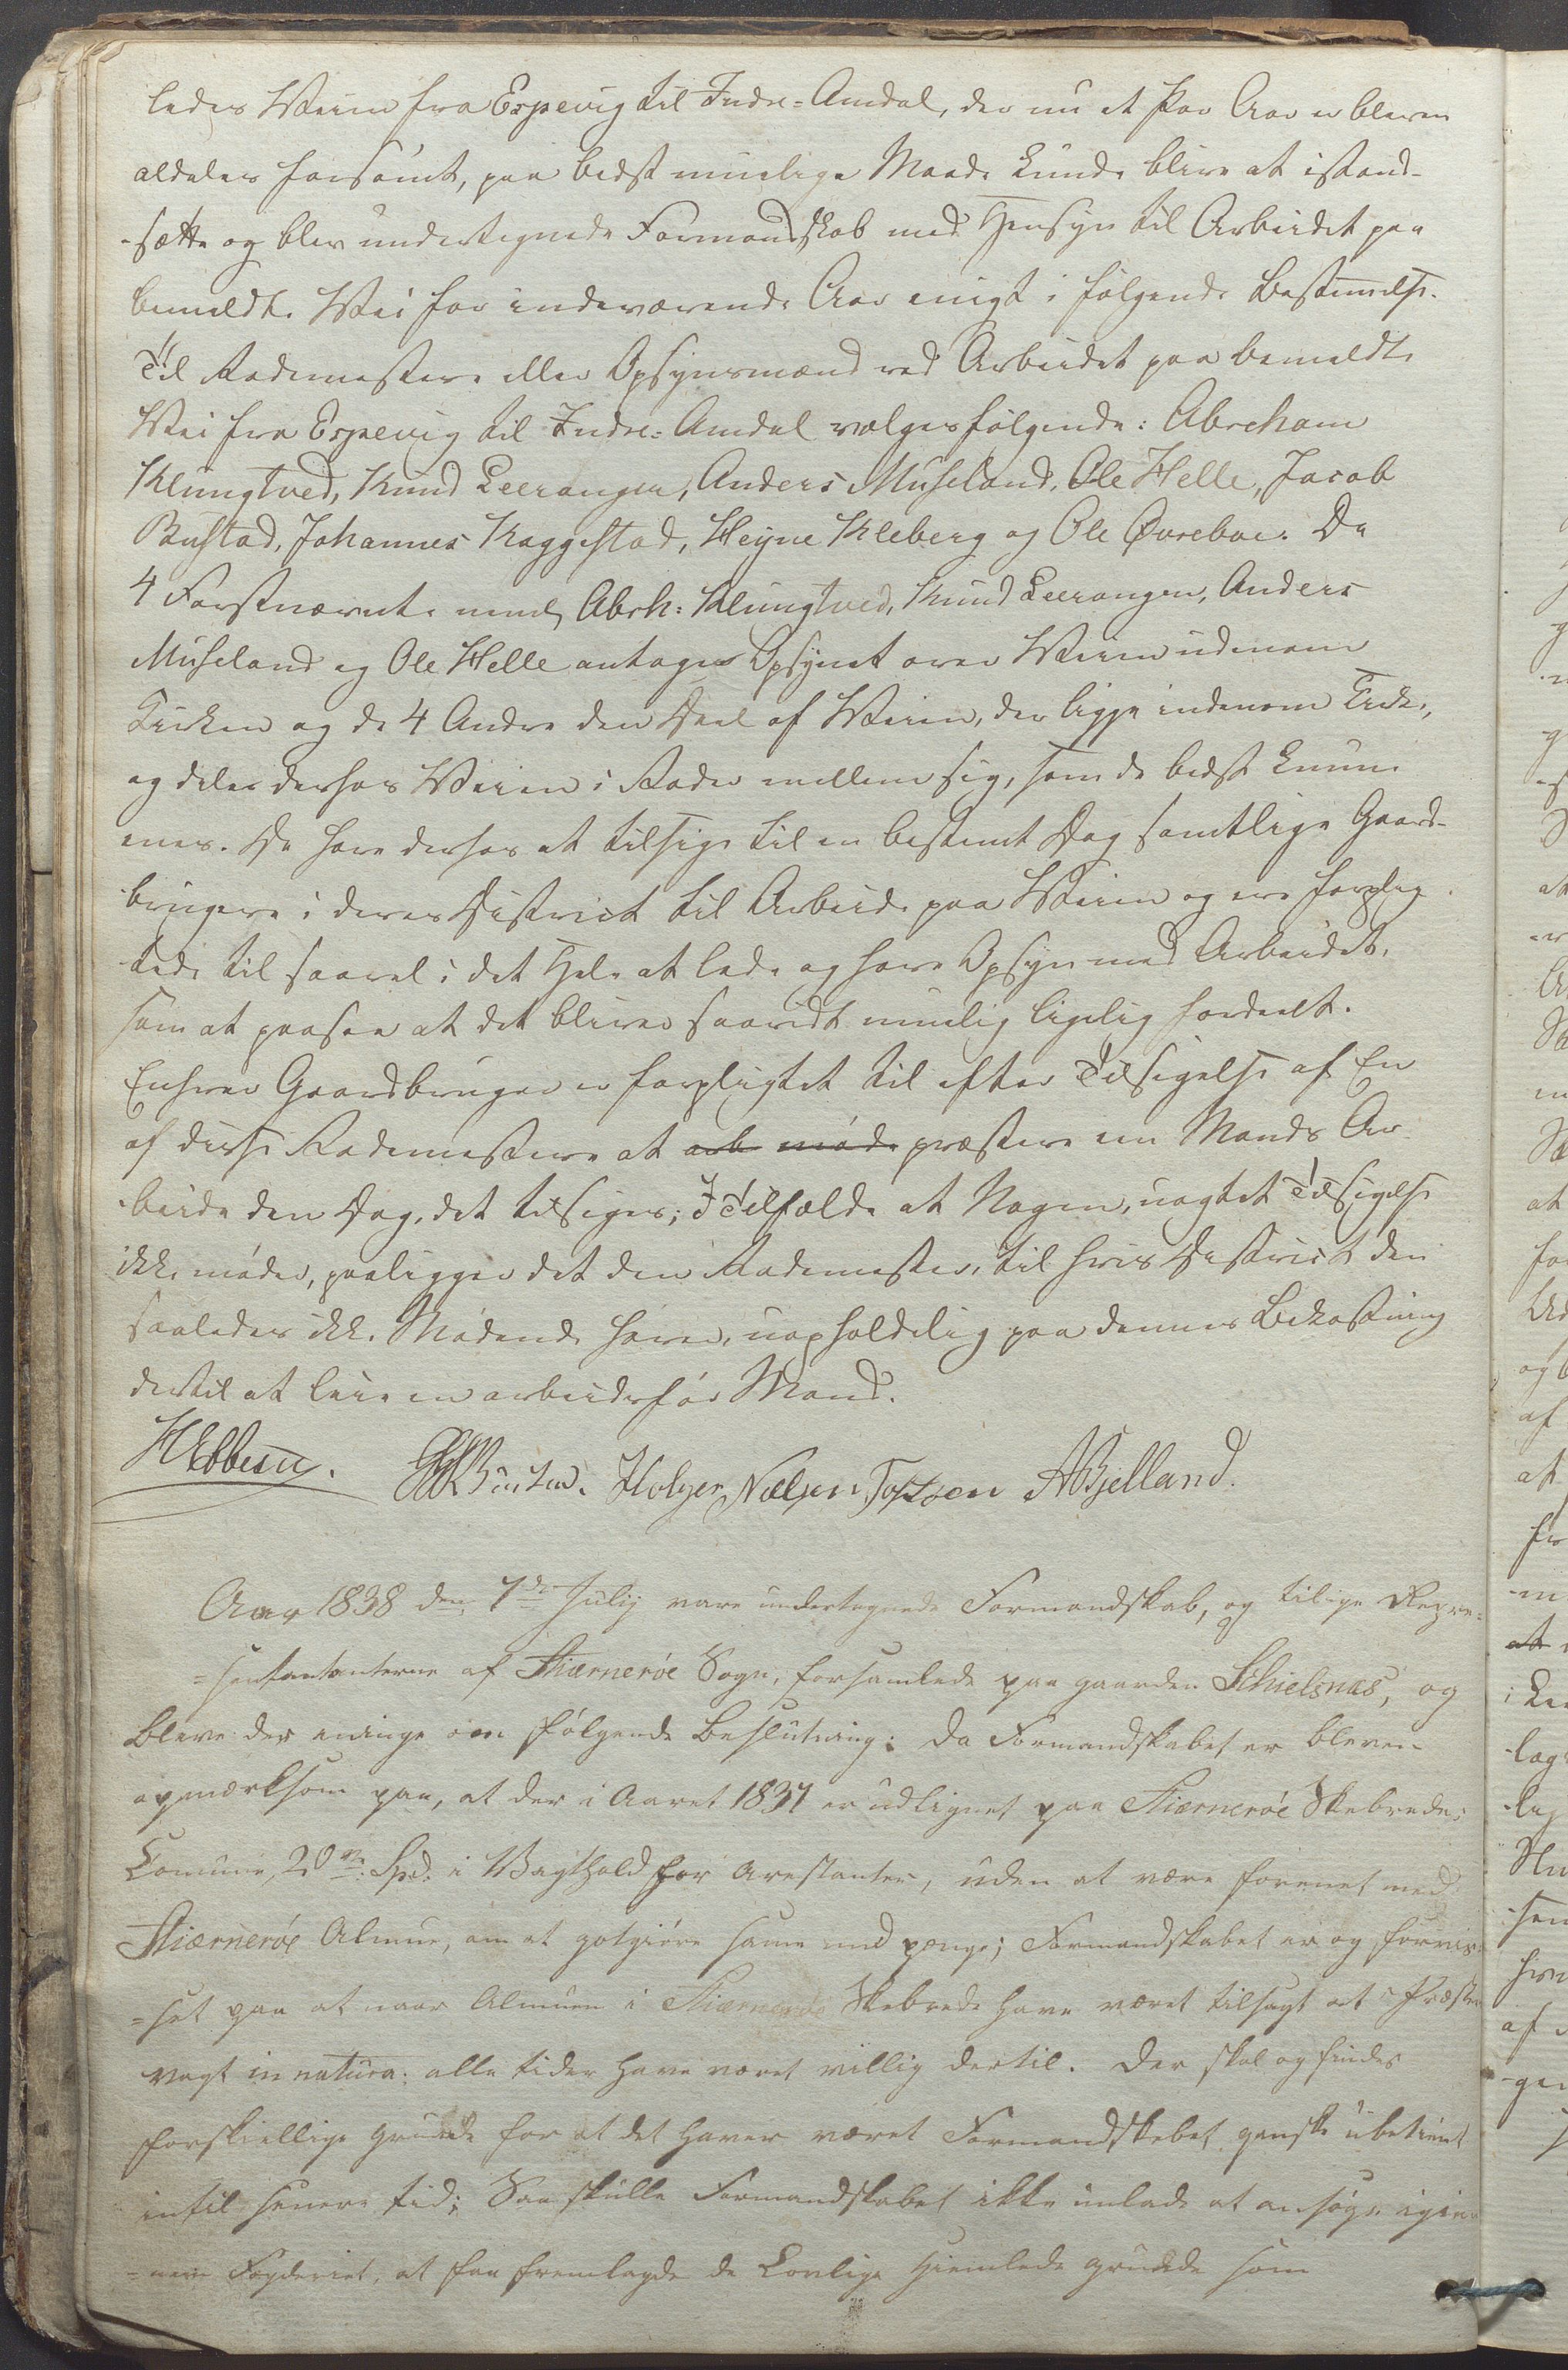 ledes Veien fra Espevig til Indre-Amdal, der nu et Par Aar er bleven
aldeles forsømt, paa bedst muelige Maade kunde blive at istand-
-sætte og blev undertegnede Formandskab med Hensyn til Arbeidet paa
bemeldte Vei for indeværende Aar enigt i følgende Bestemmelse.
Til Rodemestere eller Opsynsmænd ved Arbeidet paa bemeldte
Vei fra Espevig til Indre-Amdal vælges følgende: Abraham
Klungtved, Knud Leerangen, Anders Museland, Ole Helle, Jacob
Bustad, Johannes Kaggestad, Heyne Kleberg og Ole Øvreboe. De
4 Førstnævnte neml Abrh: Klungtved, Knud Leerangen, Anders
Museland og Ole Helle antager Opsynet over Veien udenom
Kirken og de 4 Andre den Deel af Veien, der ligge indenom Kirke,
og deles derhos Veien i Roder mellem sig, som de bedst kunne
enes. De have derhos at tilsige til en bestemt Dag samtlige Gaard-
brugere i deres District til Arbeide paa Veien og ere forplig-
tede til saavel i det Hele at lede og have Opsyn med Arbeidet,
som at paasee at det bliver saavidt muelig ligelig fordeelt.
Enhver Gaardbruger er forpligtet til efter Tilsigelse af En
af disse Rodemestere at arb møde præstere een Mands Ar-
beide den Dag, det tilsiges; I Tilfælde at Nogen, uagtet Tilsigelse
ikke møder, paaligger det den Rodemester, til hvis District den
saaledes ikke Mødende hører, uopholdelig paa dennes Bekostning
dertil at leie en arbeidsfør Mand.
HEbbesen. Holger Nielsen Tostsen ABjelland.
Aar 1838 den 7de Julij vare undertegnede Formandskab, og tilige Repre=
=sentantanterne af Stiærnerøe Sogn, forsamlede paa gaarden Schielsnæs, og
bleve der eninge om følgende Beslutning: Da Formandskabet er bleven
opmærksom paa, at der i Aaret 1837 er udlignet paa Stiærnerøe Skebrede,
Comune, 20 Spd: i Vagthold for Arestanter, uden at være forenet med
Stiærnerøe Almue, om at gotgiøre samme med penge; Formandskabet er og forvis=
=set paa at naar Almuen i Stiærnerøe Skebrede have været tilsagt at Præstere
vagt in natura: alle tider have været villig dertil. Der skal og findes
forskiellige grunde for at det haver været Formandskabet ganske ubekient
intil senere tid; Saa skulle Formandskabet ikke unlade at ansøge igien=
=nem Fogderiet, at faa fremlagde de Lovlige Hiemlede grunde som